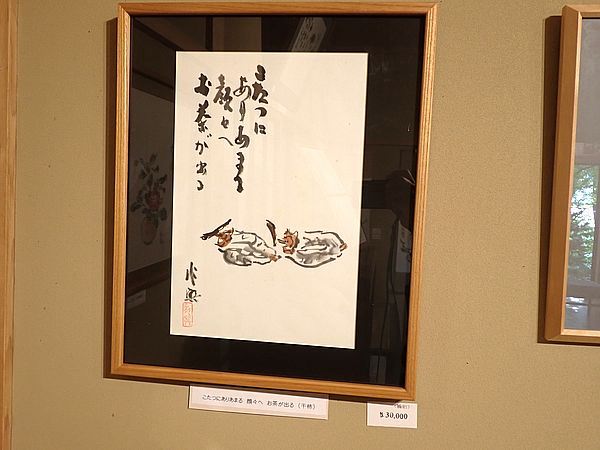 こたつに
ありあまる
顔々へ
お茶が出る
こたつにありあまる 顔々へ お茶が出る (干柿)
¥30,000